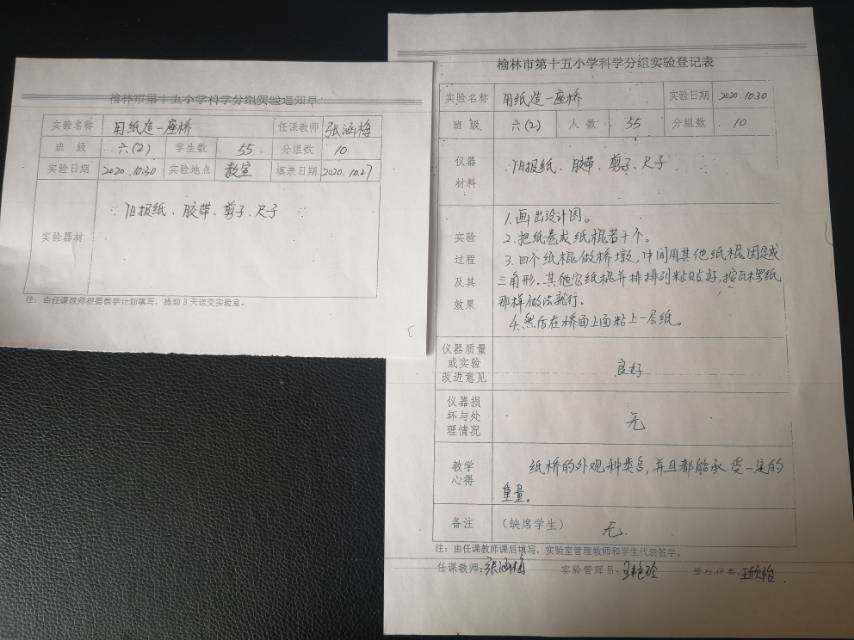 榆林市第十五小学科学分组实验通知单
实验名称 用纸造一座桥 任课教师 张涵梅
班 级 六(2) 学生数 55 分组数 10
实验日期 2020.10.30 实验地点 教室 填表日期 2020.10.27
实验器材 旧报纸、胶带、剪子、尺子
注：由任课教师根据教学计划填写，提前3天送交实验室。
榆林市第十五小学科学分组实验登记表
实验名称 用纸造一座桥 实验日期 2020.10.30
班 级 六(2) 人 数 55 分组数 10
仪器
材料
旧报纸、胶带、剪子、尺子
实验
过程
及其
效果
1.画出设计图。
2.把纸卷成纸棍若干个。
3.四个纸棍做桥墩，中间用其他纸棍固定成
三角形。其他宽纸棍并排排列粘贴好，按瓦楞纸
那样做法就行。
4.然后在桥面上面粘上一层纸。
仪器质量
或实验
改进意见
良好
仪器损
坏与处
理情况
无
教学
心得
纸桥的外观种类多，并且都能承受一定的
重量。
备注 (缺席学生) 无
注：由任课教师课后填写，实验室管理教师和学生代表签字。
任课教师：张涵梅 实验管理员：王艳玲 学生代表：王欣怡